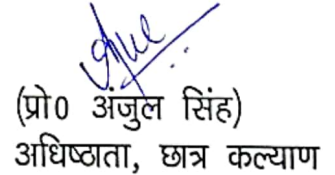 (प्रो0 अंजुल सिंह)
अधिष्ठाता, छात्र कल्याण